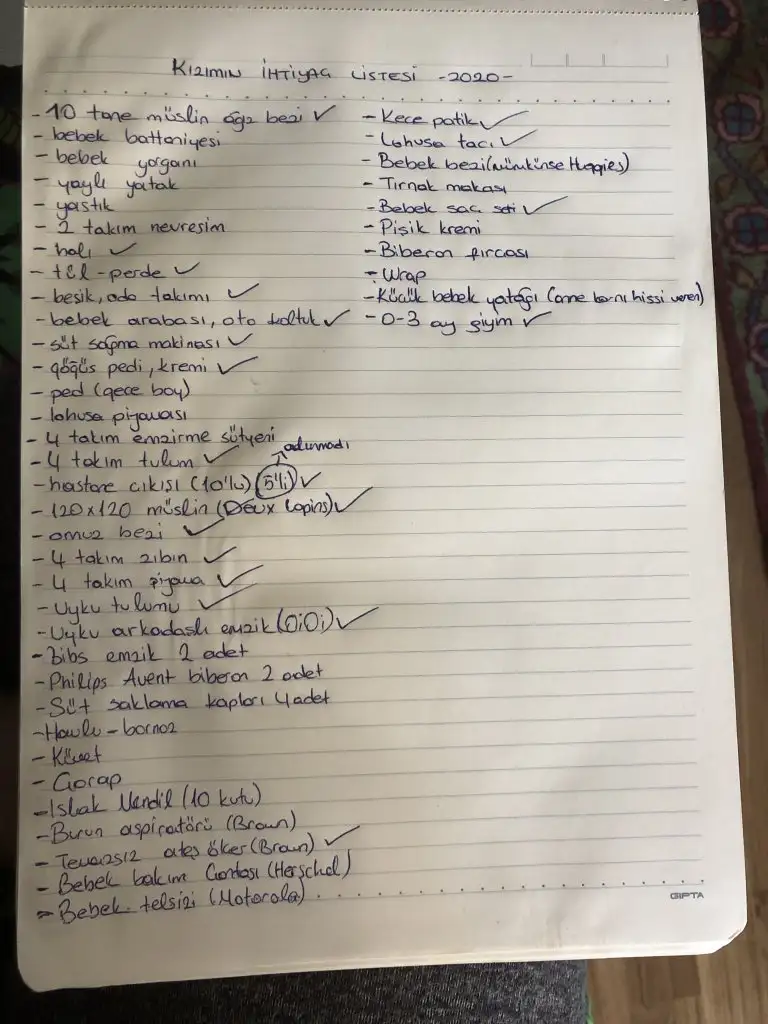 KIZIMIN İHTİYAÇ LİSTESİ -2020-
- 10 tane müslin ağız bezi ✓
- bebek battaniyesi
- bebek yorganı
- yaylı yatak
- yastık
- 2 takım nevresim
- halı ✓
- tül-perde ✓
- beşik, oda takımı ✓
- bebek arabası, oto koltuk ✓
- süt sağma makinası ✓
- göğüs pedi, kremi ✓
- ped (gece boy)
- lohusa pijaması
- 4 takım emzirme sütyeni
- 4 takım tulum ✓
alınmadı
- hastane çıkışı (10'lu) (5'li) ✓
- 120x120 müslin (Deux Lapins) ✓
- omuz bezi ✓
- 4 takım zıbın ✓
- 4 takım pijama ✓
- Uyku tulumu ✓
- Uyku arkadaşlı emzik (OiOi) ✓
- Bibs emzik 2 adet
- Philips Avent biberon 2 adet
- Süt saklama kapları 4 adet
- Havlu - bornoz
- Küvet
- Çorap
- Islak Mendil (10 kutu)
- Burun aspiratörü (Braun)
- Temazsız ateş ölçer (Braun) ✓
- Bebek bakım Çantası (Herschel)
- Bebek telsizi (Motorola)
- Keçe patik ✓
- Lohusa tacı ✓
- Bebek bezi (mümkünse Huggies)
- Tırnak makası
- Bebek saç seti ✓
- Pişik kremi
- Biberon fırçası
- Wrap
- Küçük bebek yatağı (anne karnı hissi veren)
- 0-3 ay giyim ✓
GIPTA